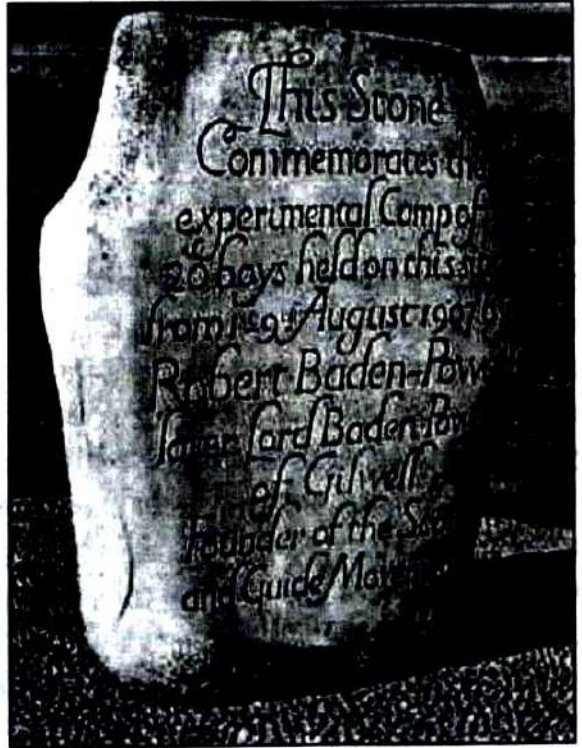 This Stone
Commemorates
experimental Camp of
20 boys held on this
from 1st-9th August 1907
Robert Baden-Pow
later Lord Baden-Pow
of Gilwell
Founder of the
and Guide